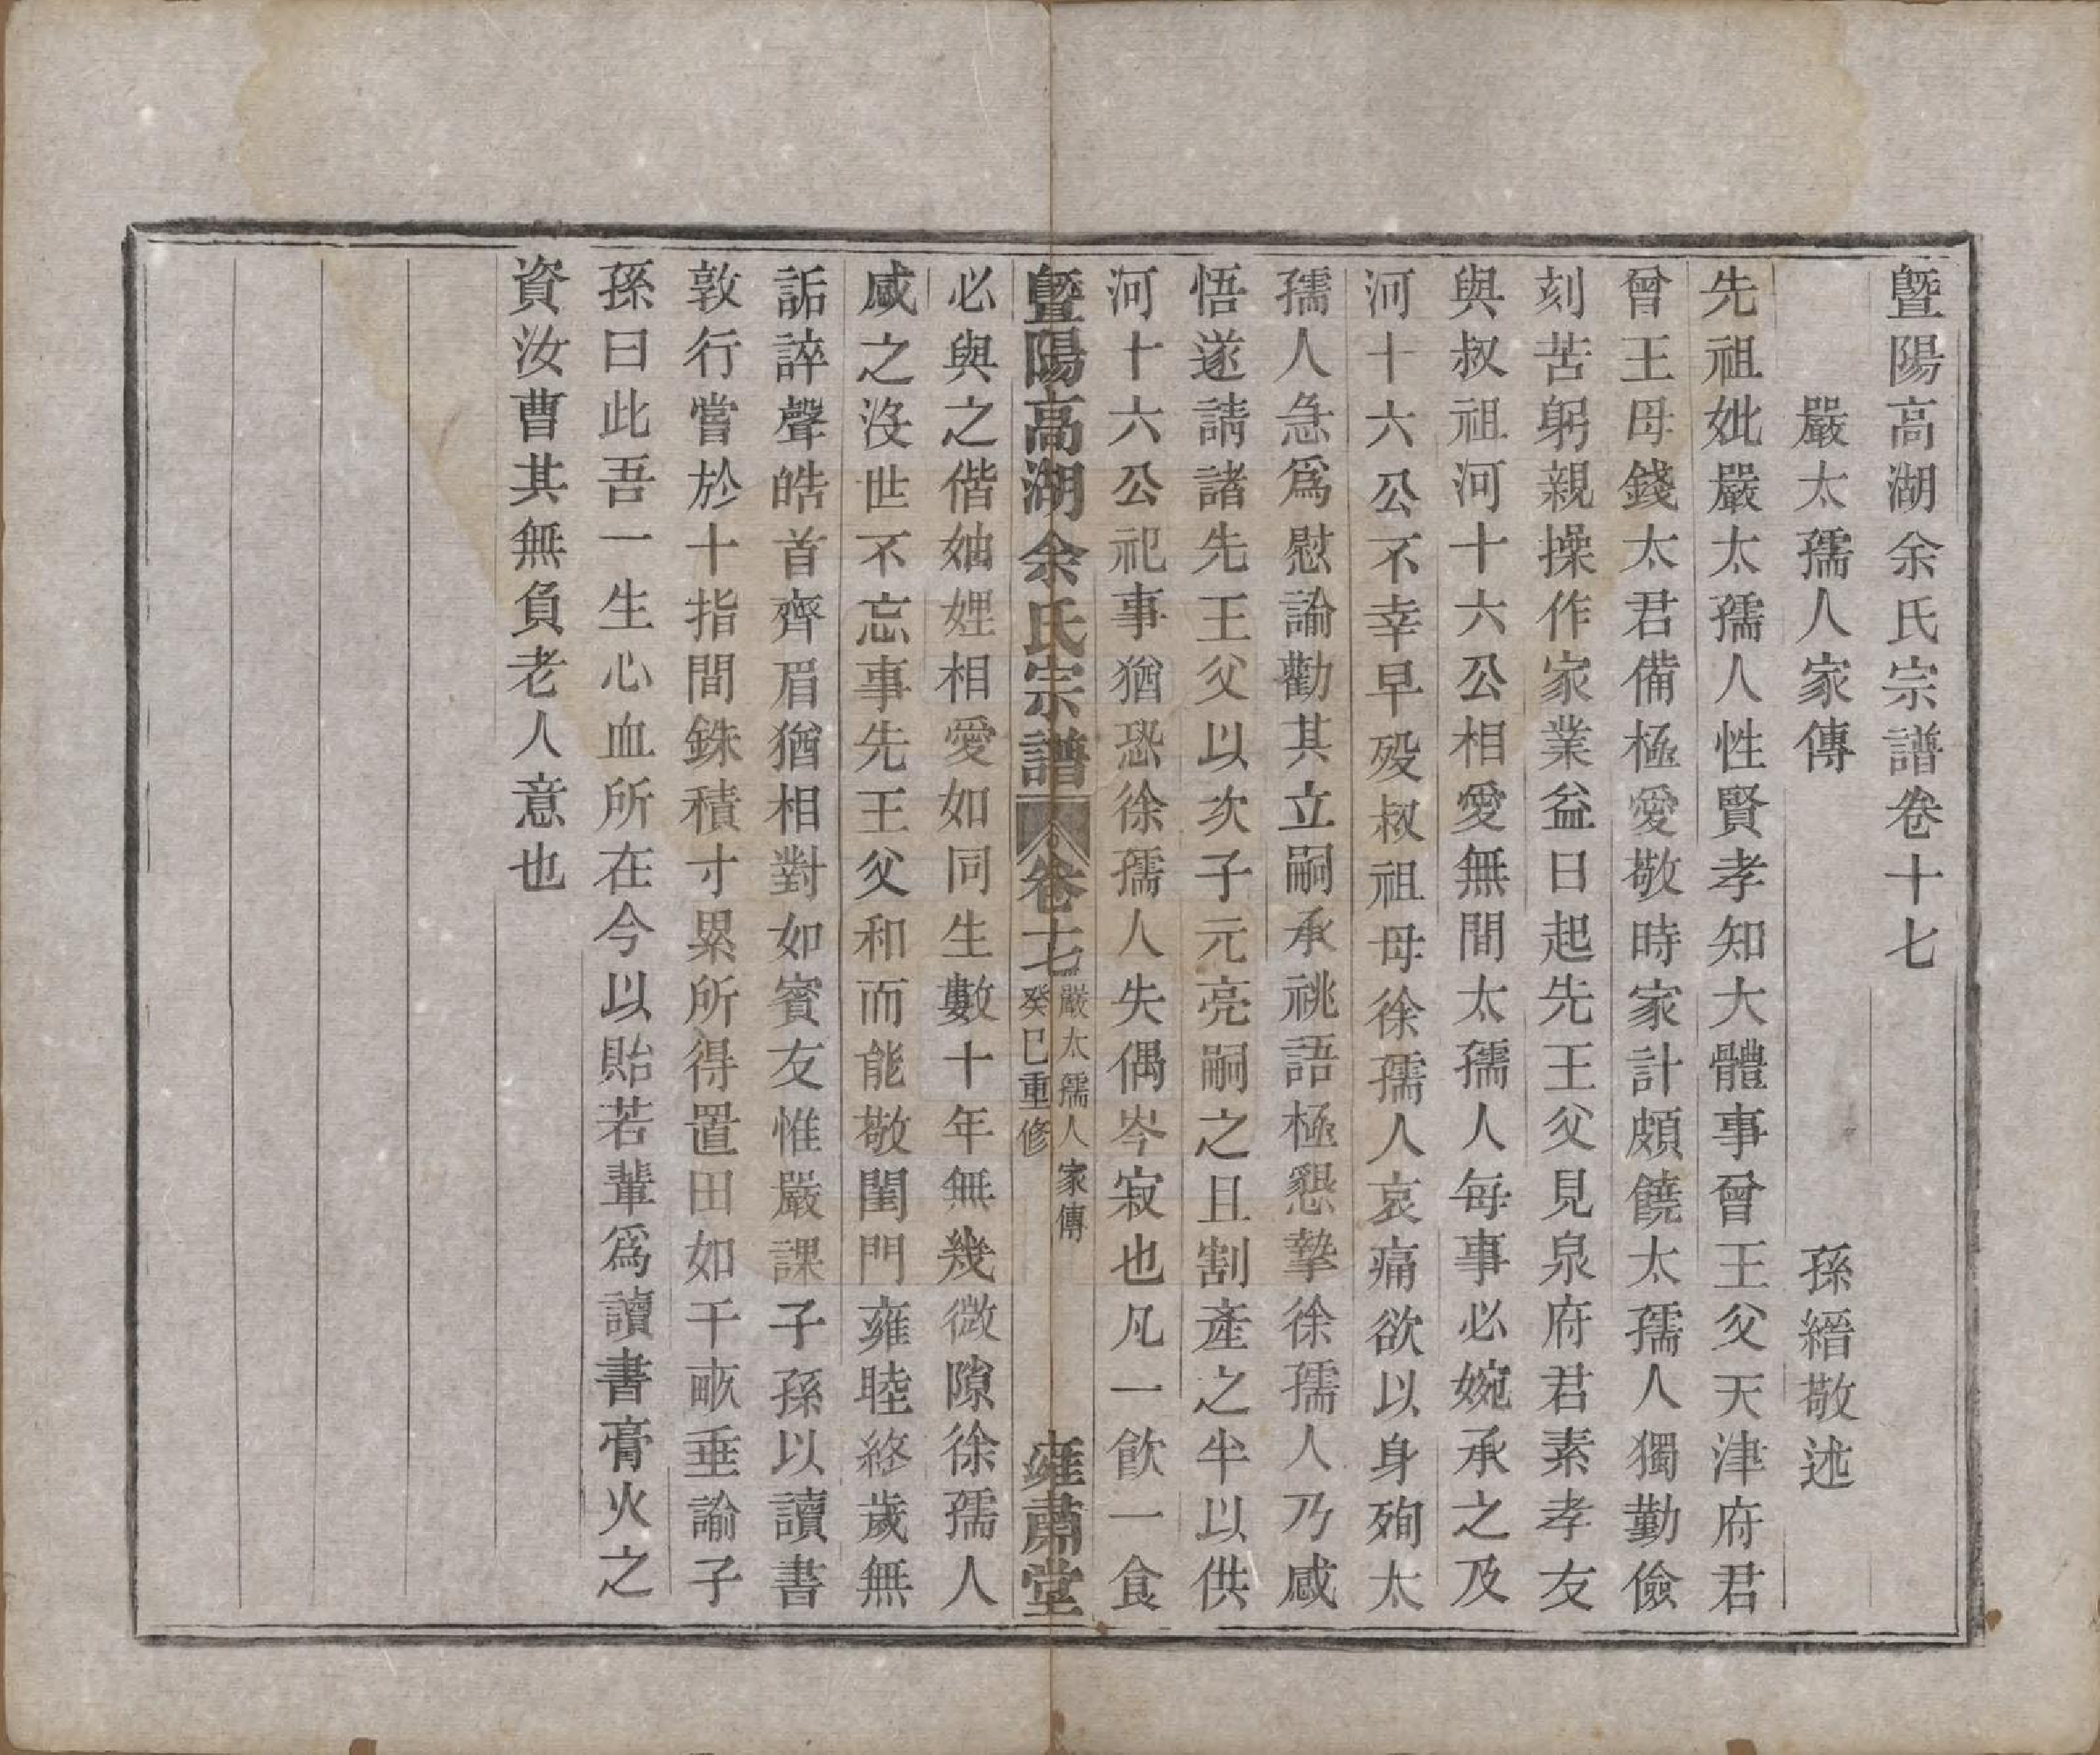 暨陽高湖余氏宗譜卷十七
嚴太孺人家傳
孫縉敬述
先祖妣嚴太孺人性賢孝知大體事曾王父天津府君
曾王母錢太君備極愛敬時家計頗饒太孺人獨勤儉
刻苦躬親操作家業益日起先王父見泉府君素孝友
與叔祖河十六公相愛無間太孺人每事必婉承之及
河十六公不幸早歿叔祖母徐孺人哀痛欲以身殉太
孺人急爲慰諭勸其立嗣承祧語極懇摯徐孺人乃感
悟遂請諸先王父以次子元亮嗣之且割產之半以供
河十六公祀事猶恐徐孺人失偶岑寂也凡一飲一食
暨陽高湖余氏宗譜
卷十七
嚴太孺人家傳
癸巳重修
雍肅堂
必與之偕妯娌相愛如同生數十年無幾微隙徐孺人
感之沒世不忘事先王父和而能敬閨門雍睦終歲無
詬誶聲皓首齊眉猶相對如賓友惟嚴課子孫以讀書
敦行嘗於十指間銖積寸累所得置田如干畝垂諭子
孫曰此吾一生心血所在今以貽若輩爲讀書膏火之
資汝曹其無負老人意也